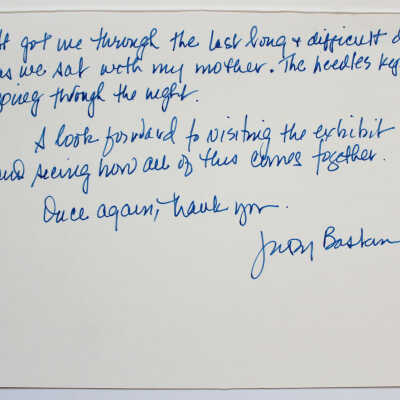 It got me through the last long & difficult d
as we sat with my mother. The needles kep
going through the night.
I look forward to visiting the exhibit
and seeing how all of this comes together.
Once again, thank you.
Judy Baskin